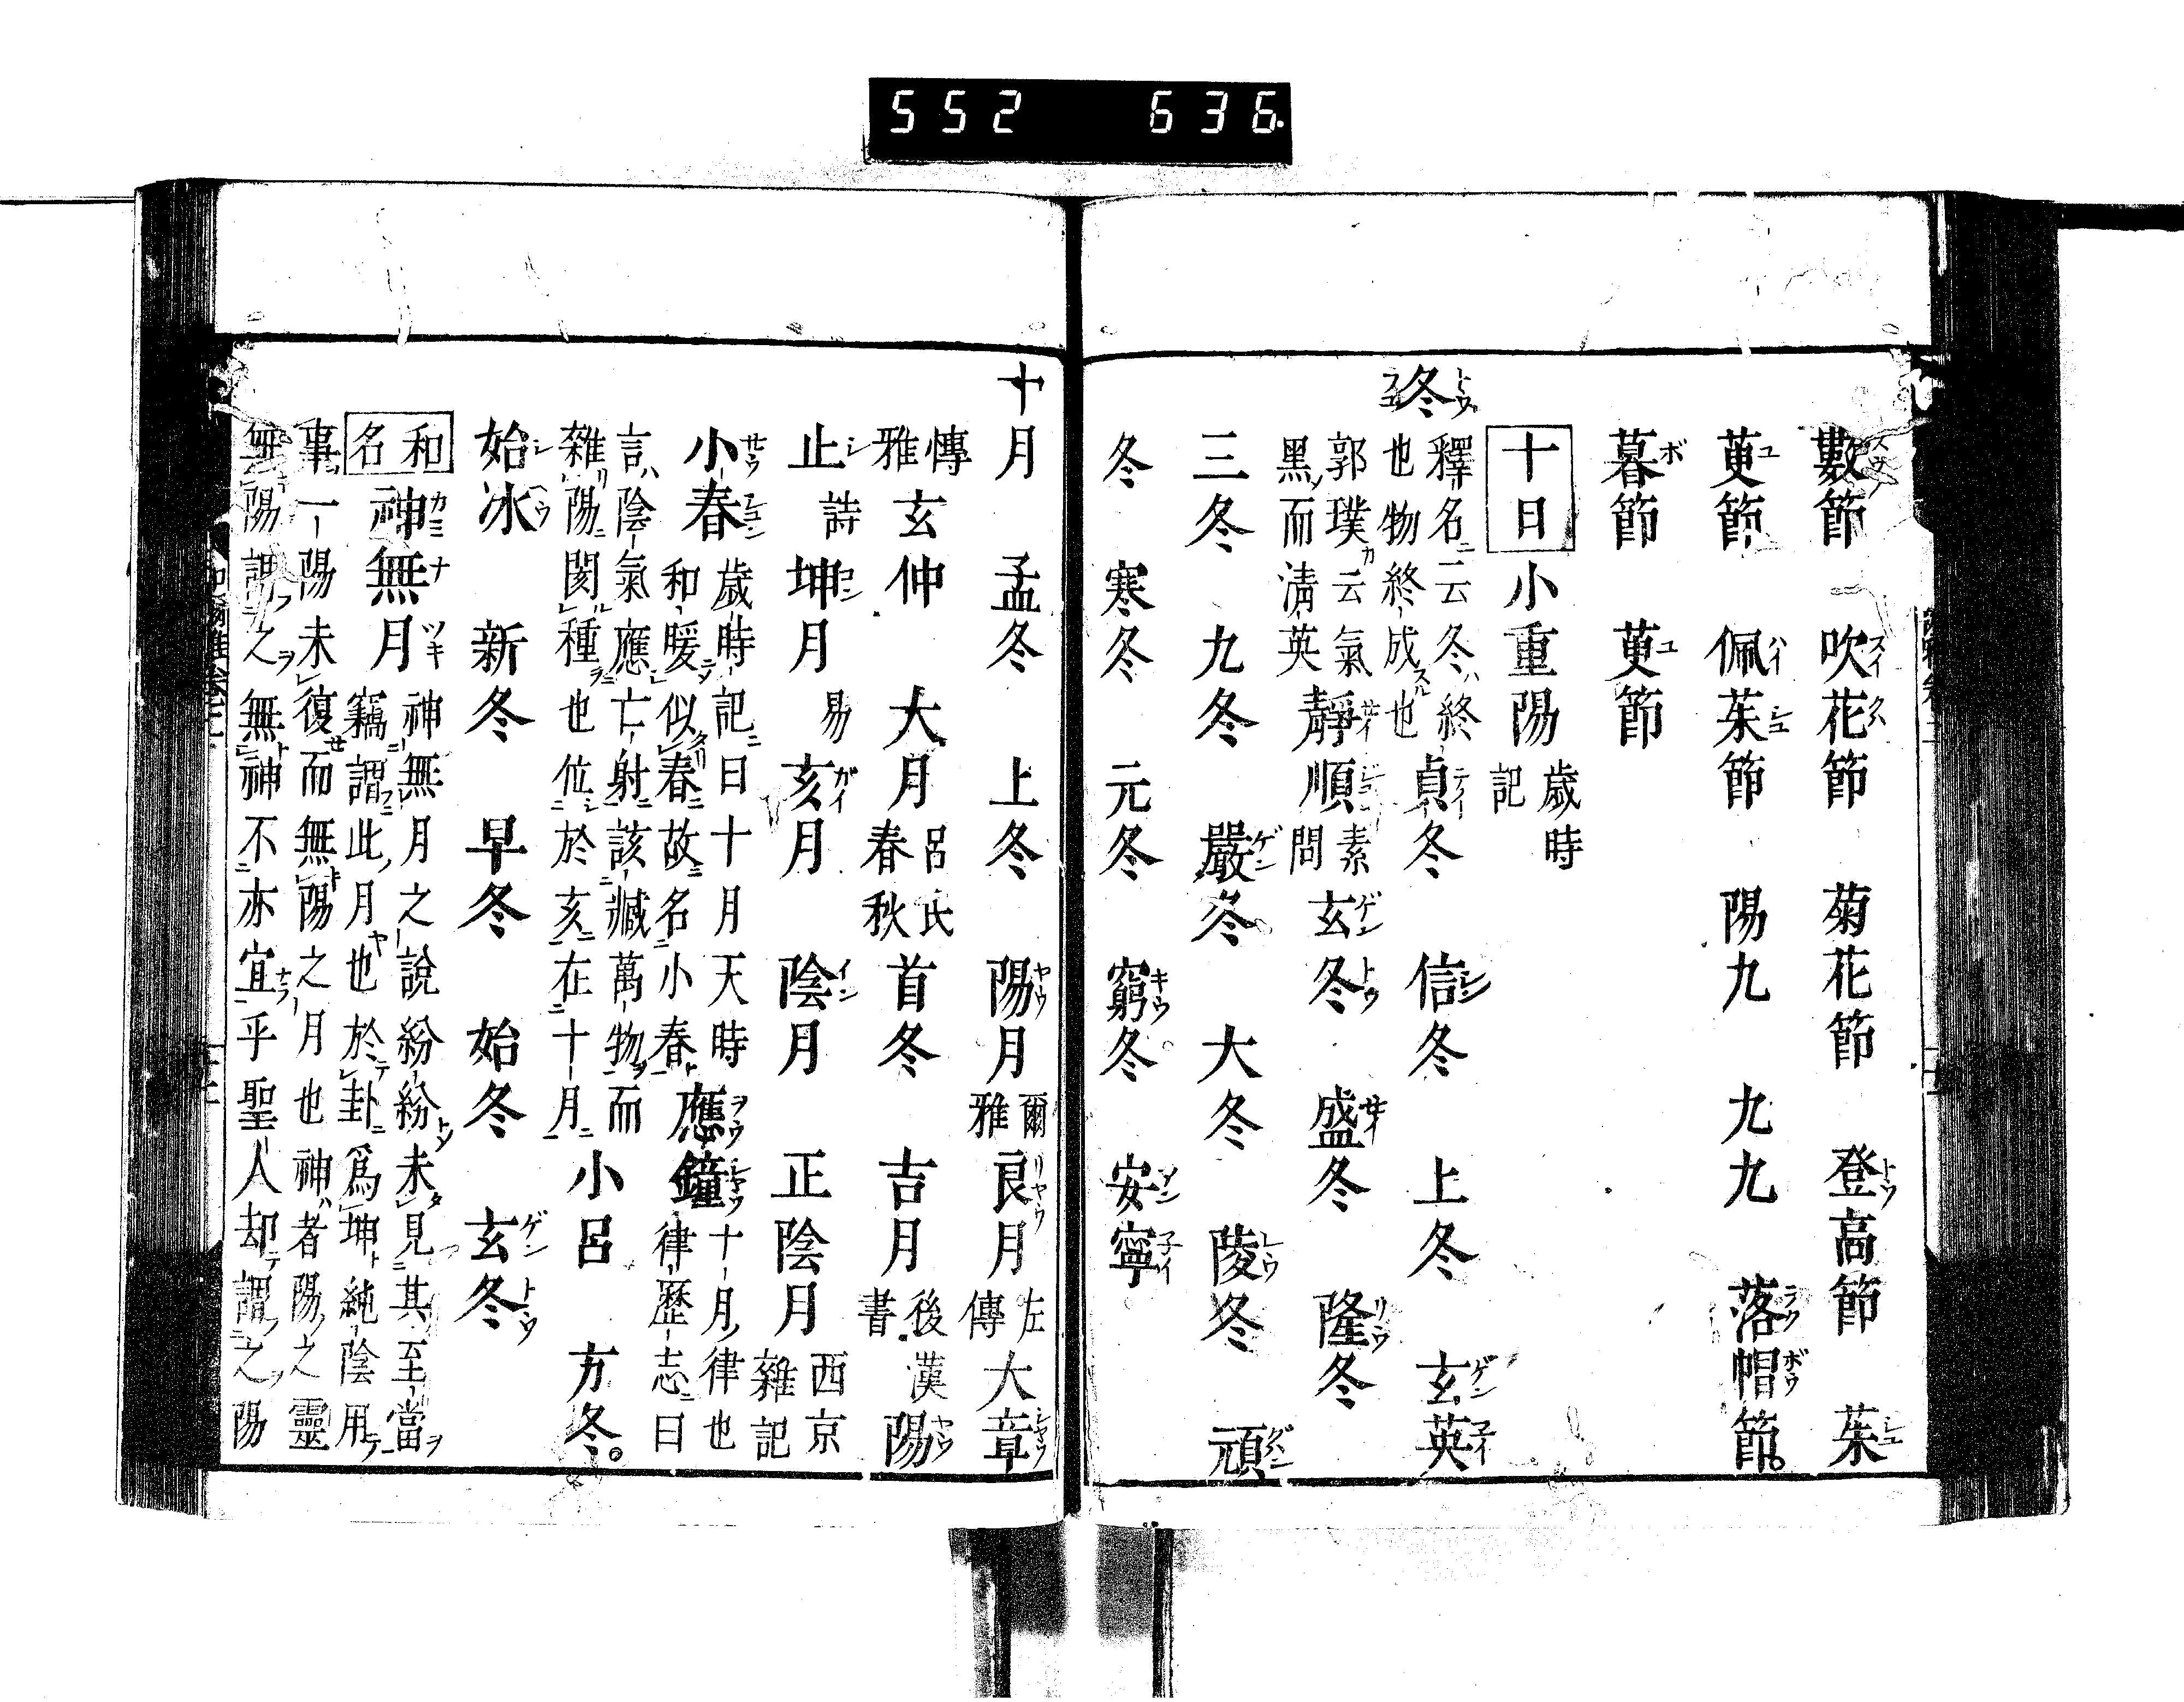 552 636.
數節 吹花節 菊花節 登高節 茱
萸節 佩茱節 陽九 九九 落帽節
暮節 萸節
十日 小重陽 歲時記
冬 釋名云冬ハ終也物終成也 貞冬 信冬 上冬 玄英
郭璞云氣黑而淸英 靜順 素問 玄冬 盛冬 隆冬
三冬 九冬 嚴冬 大冬 陵冬 頑
冬 寒冬 元冬 窮冬 安寧
十月 孟冬 上冬 陽月 爾雅 良月 左傳 大章
傳雅 玄仲 大月 呂氏春秋 首冬 吉月 後漢書 陽
止 詩 坤月 易 亥月 陰月 正陰月 西京雜記
小春 歲時記曰十月天時和暖似春故名小春 應鐘 十月律也律歷志曰
言陰氣應亡射該臧萬物而雜陽閡種也位於亥在十月 小呂 方冬
始冰 新冬 早冬 始冬 玄冬
和名 神無月 神無月之說紛紛未見其至當竊謂此月也於卦爲坤純陰用
事一陽未復而無陽之月也神者陽之靈
無陽謂之無神不亦宜乎聖人却謂之陽